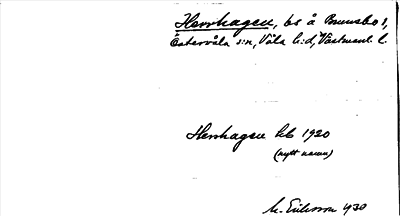 Herrhagen, bs å Brunsbo 1,
Östervåla s:n, Våla h:d, Västmanl. l.
Herrhagen kb 1920
(nytt namn)
M. Eriksson 1930